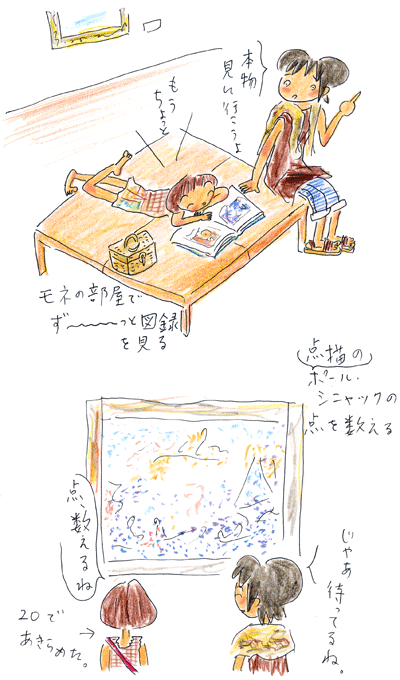 本物
見に行こうよ
もう
ちょっと
モネの部屋で
ず〜〜〜っと図録
を見る
点描の
ポール・
シニャックの
点を数える
点、数えるね
じゃあ
待ってるね。
20で
あきらめた。